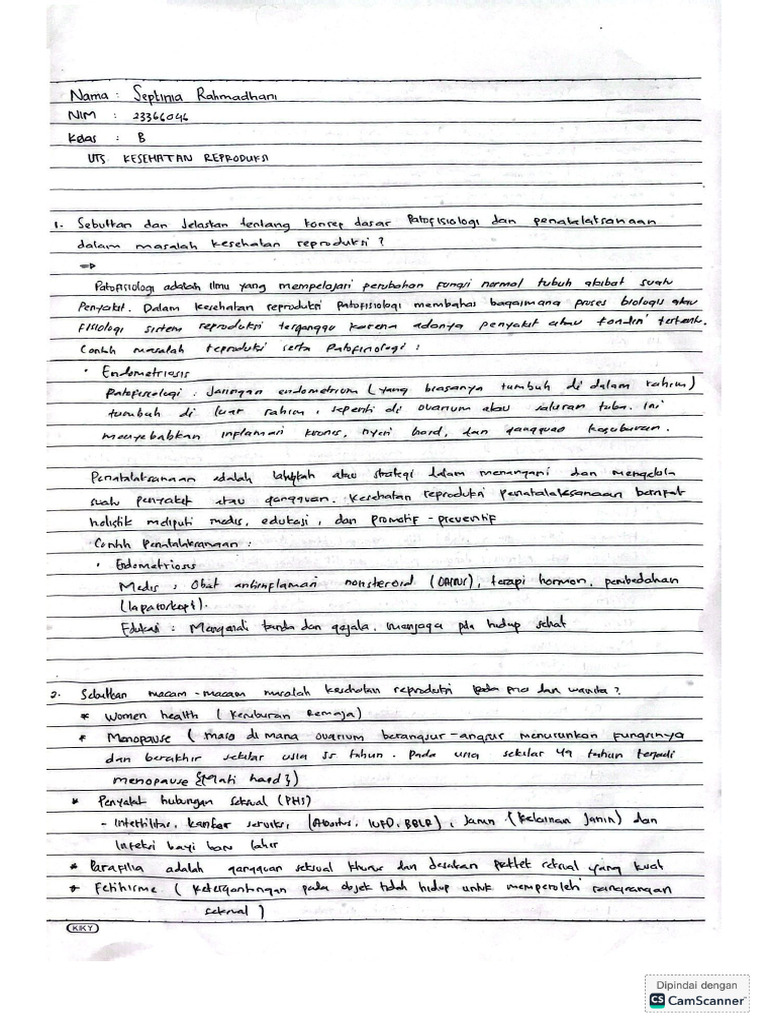 Nama : Septinia Rahmadhani
NIM : 23366046
Kelas : B
UTS KESEHATAN REPRODUKSI
1. Sebutkan dan Jelaskan tentang konsep dasar Patofisiologi dan penatalaksanaan
dalam masalah kesehatan reproduksi ?
=>
Patofisiologi adalah Ilmu yang mempelajari perubahan fungsi normal tubuh akibat suatu
Penyakit. Dalam kesehatan reproduksi patofisiologi membahas bagaimana proses biologis atau
fisiologi sistem reproduksi terganggu karena adanya penyakit atau kondisi tertentu.
Contoh masalah reproduksi serta Patofisiologi :
• Endometriosis
Patofisiologi : Jaringan endometrium (yang biasanya tumbuh di dalam rahim)
tumbuh di luar rahim, seperti di ovarium atau saluran tuba. Ini
menyebabkan inflamasi kronis, nyeri haid, dan gangguan kesuburan.
Penatalaksanaan adalah langkah atau strategi dalam menangani dan mengelola
suatu penyakit atau gangguan. Kesehatan reproduksi penatalaksanaan bersifat
holistik meliputi medis, edukasi, dan promotif - preventif
Contoh Penatalaksanaan :
• Endometriosis
Medis : Obat antiinflamasi nonsteroid (OAINS), terapi hormon, pembedahan
(laparoskopi).
Edukasi : Mengenali tanda dan gejala, menjaga pola hidup sehat
2. Sebutkan macam - macam masalah kesehatan reproduksi pada pria dan wanita ?
* Women health ( Kesuburan Remaja)
* Menopause ( masa di mana ovarium berangsur - angsur menurunkan fungsinya
dan berakhir sekitar usia 55 tahun. Pada usia sekitar 49 tahun terjadi
menopause {Mati haid})
* Penyakit hubungan seksual (PHS)
- Infertilitas, kanker serviks, (Abortus, IUFD, BBLR), Janin (kelainan janin) dan
Infeksi bayi baru lahir
* Parafilia adalah gangguan seksual khusus dan desakan seksual yang kuat
* Fetihisme ( ketergantungan pada objek tidak hidup untuk memperoleh rangsangan
seksual )
KIKY
Dipindai dengan
CS CamScanner